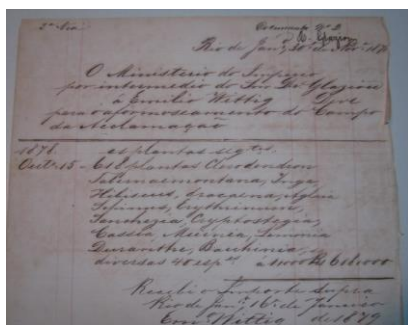 2ª Via
Documento Nº 2
Glaziou
Rio de Janº 30 de Novº 1878
O Ministerio do Imperio
por intermedio do Snr. Dr Glaziou
á Emilio Wittig Deve
para o aformoseamento do Campo
da Acclamação
1878 as plantas segtes.
Outr. 15 - 618 plantas Clerodendron
Tabernaemontana, Inga,
Hibiscus, Dracaena, Aglaia
Schinus, Erythrinum,
Sanchezia, Cryptostegia,
Cassia, Murraea,
Duranthe, Bauhinia, e
diversas 40 espes á 1$000 Rs 618$000
Recebi o importe supra
Rio de Janº 16 de Janeiro
Em. Wittig de 1879